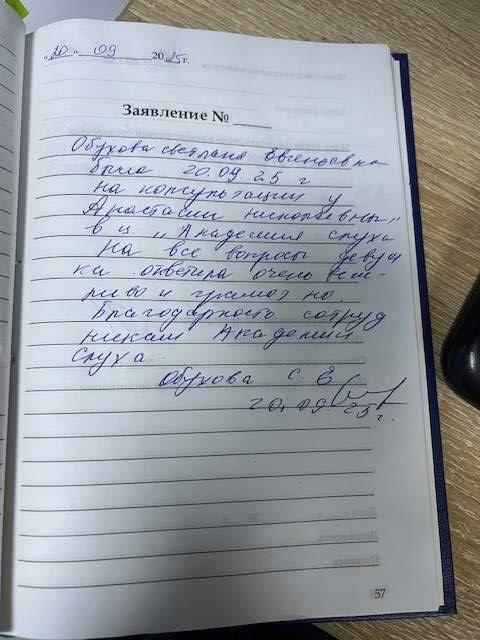 "20" 09 2025г.
Заявление №
Обухова светлана Евгеньевна
была 20.09.25 г
на консультации у
Анастасии николаевны"
в ц "Академия слуха
На все вопросы девуш
ка ответила очень веж-
ливо и грамотно.
Благодарность сотруд
никам Академии
Слуха.
Обухова С. Е
20.09.25г.
57